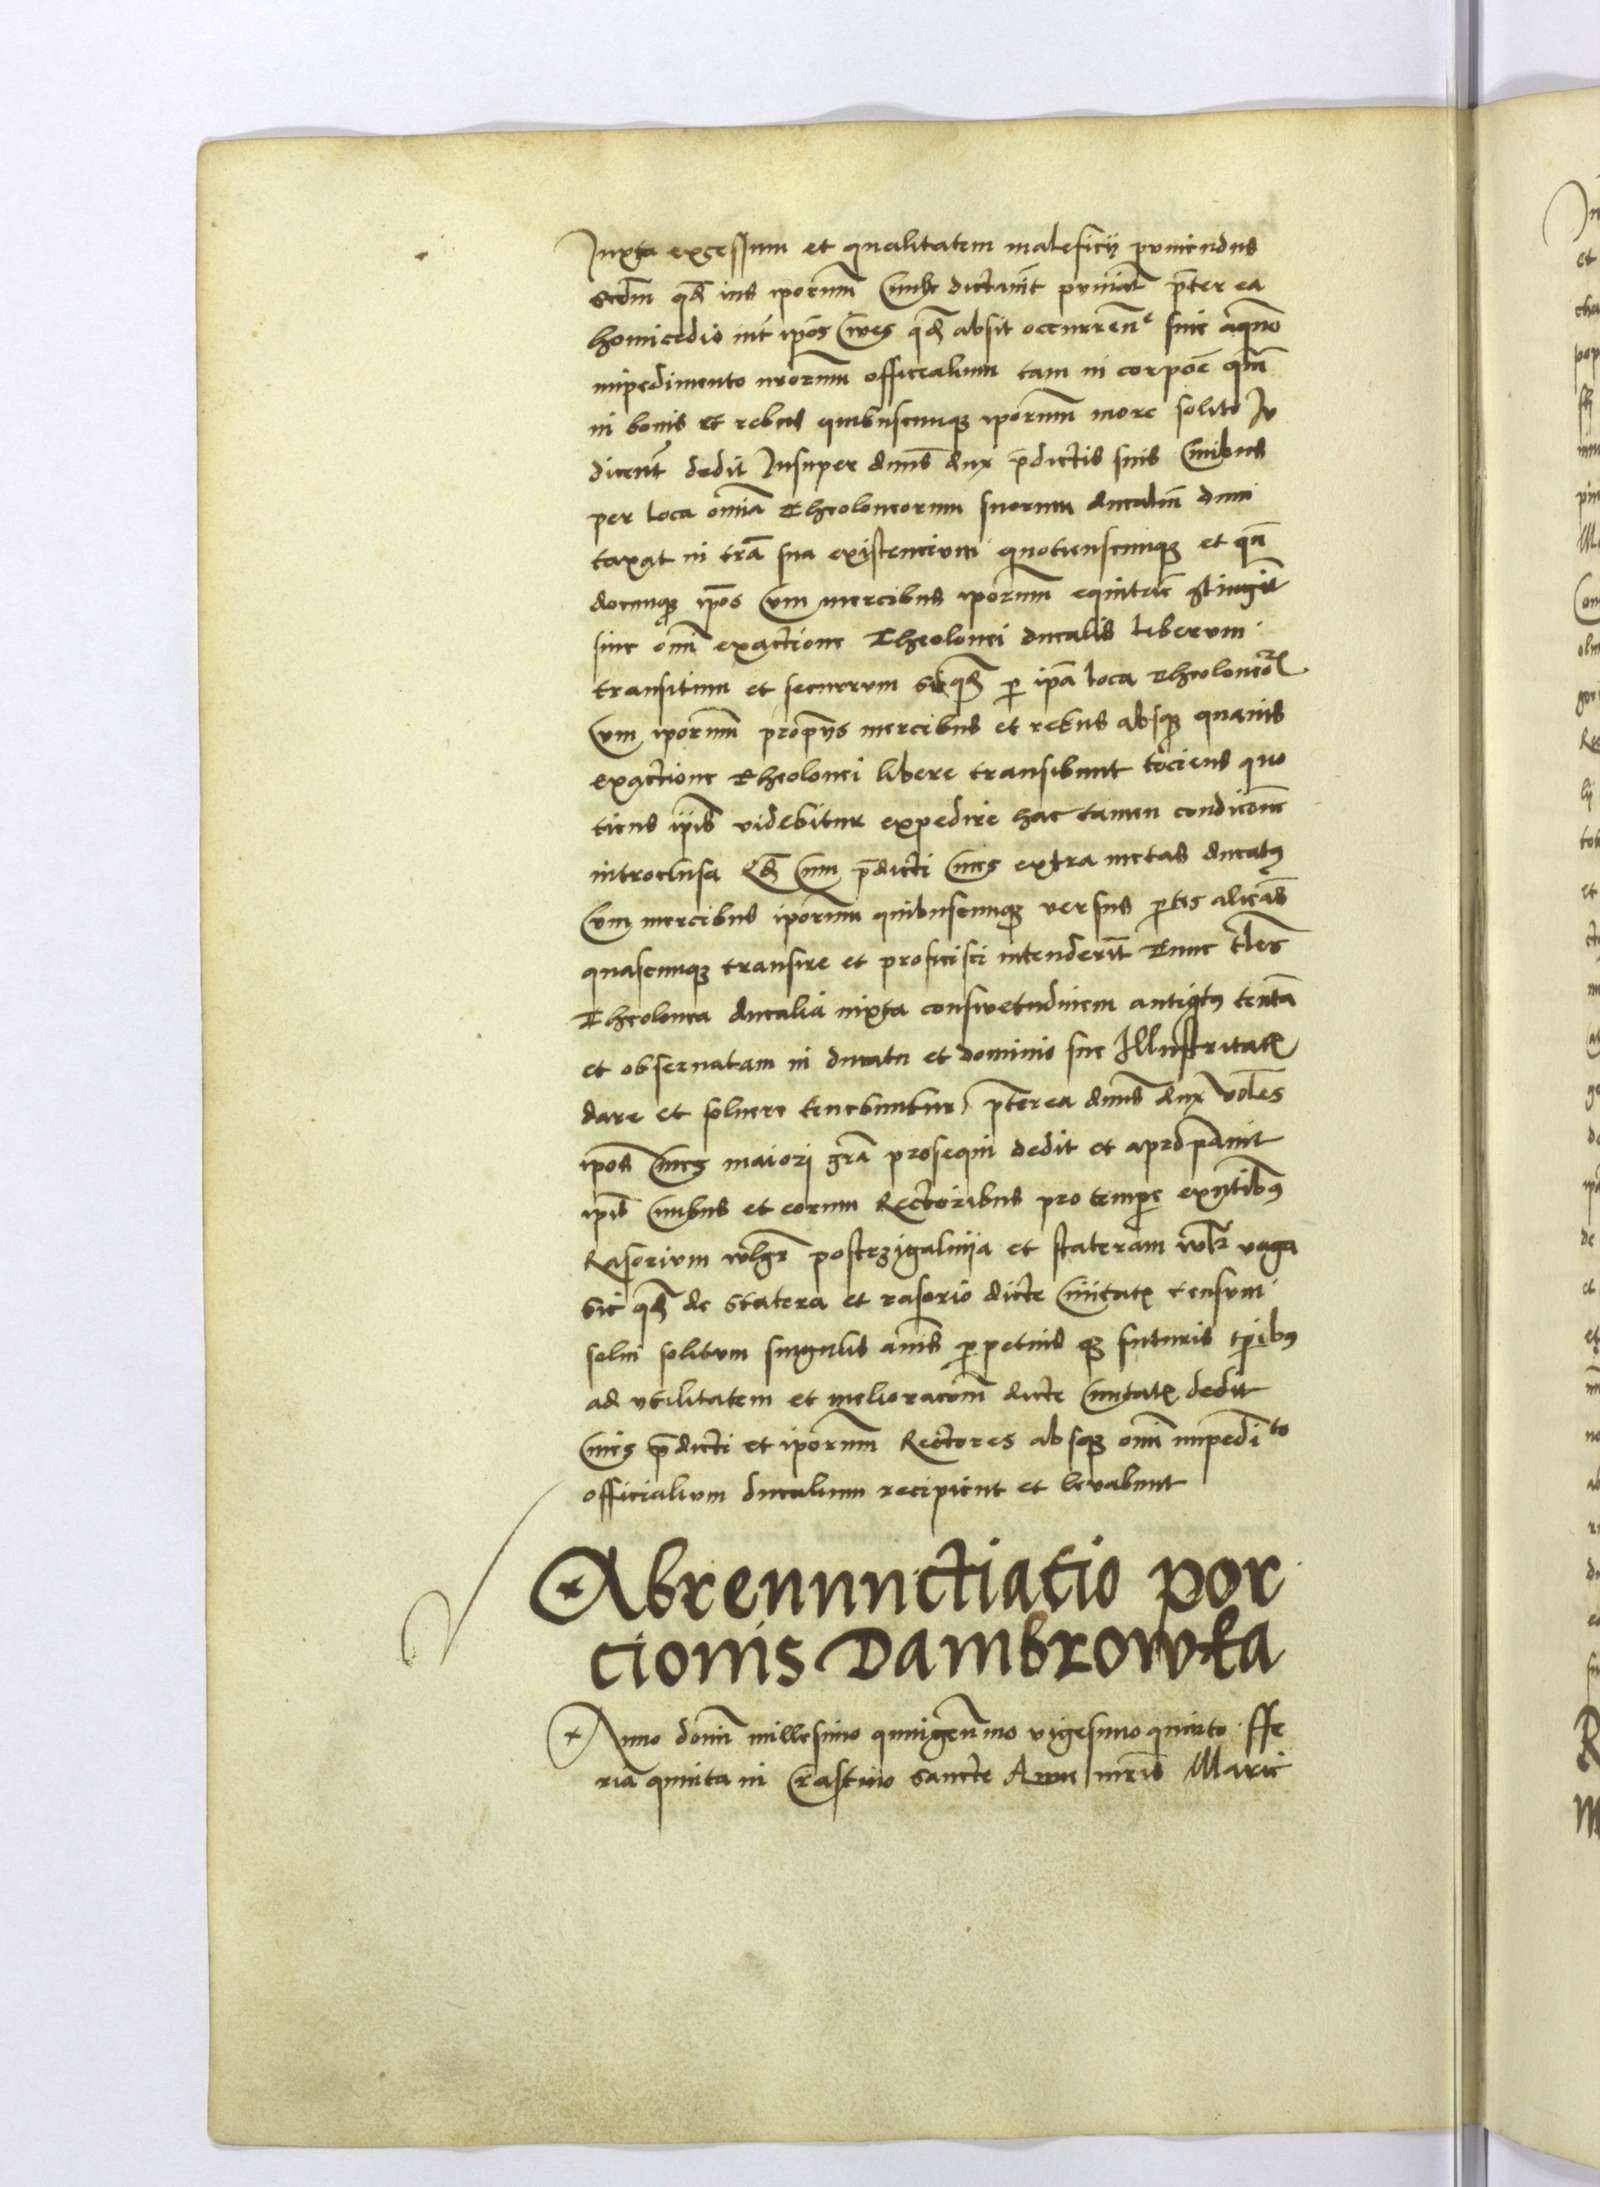 Juxta excessum et qualitatem maleficij puniendus
scdm qd ius iporum Ciuile dictauit puniat preter ea
homicidio int ipos Ciues qd absit occurren sine aliquo
impedimento nrorum officialium tam in corpoe qua
in bonis et rebus quibuscunque iporum more solito Iu
dicent dedit Insuper dnus dux predictis suis Ciuibus
per loca omia Theoloneorum suorum ducaliu dum
taxat in tra sua existencium quotienscunque et quan
docunque ipos cum mercibus iporum equitare contingit
sine omi exactione Theolonei ducalis liberum
transitum et securum sicque per ipa loca Theoloneor
Cum iporum proprijs mercibus et rebus absque quauis
exactione Theolonei libere transibunt tociens quo
tiens ipis videbitur expedire hac tamen condicione
introclusa Quod cum predicti Ciues extra metas ducatus
Cum mercibus iporum quibuscunque versus partes alienas
quascunque transire et proficisci intenderint Tunc tales
Theolonea ducalia iuxta consuetudinem antiquitus tentam
et obseruatam in ducatu et dominio sue Illustritatis
dare et soluere tenebuntur preterea dnus dux volens
ipos Ciues maiori gra prosequi dedit et apropauit
ipis Ciuibus et eorum Rectoribus pro tempore existentibus
Rasorium wlgr postrzigalnija et stateram wlgr vaga
sic qd de statera et rasorio dicte Ciuitatis censum
solui solitum singulis annis perpetuis que futuris tpibus
ad vtilitatem et melioracom dicte Ciuitatis dedit
Ciues predicti et iporum Rectores absque omi impedito
officialium ducalium recipient et leuabunt
Abrenunctiatio por
cionis Dambrowka
Anno domi millesimo quingenmo vigesimo quinto ffe
ria quinta in Crastino sancte Anne mris Marie